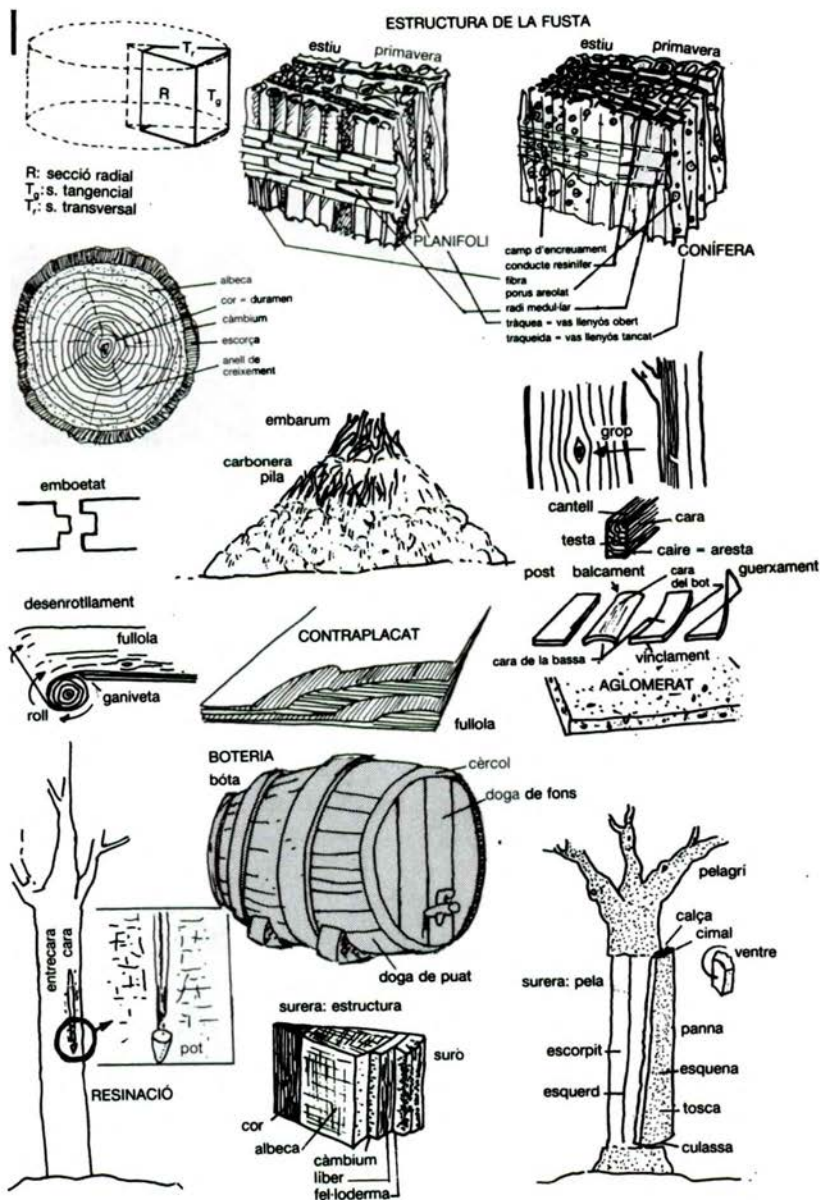 ESTRUCTURA DE LA FUSTA
T_r
R
T_g
R: secció radial
T_g: s. tangencial
T_r: s. transversal
estiu
primavera
estiu
primavera
PLANIFOLI
CONÍFERA
camp d'encreuament
conducte resinífer
fibra
porus areolat
radi medul·lar
tràquea = vas llenyós obert
traqueida = vas llenyós tancat
albeca
cor = duramen
càmbium
escorça
anell de
creixement
embarum
carbonera
pila
grop
emboetat
cantell
cara
testa
caire = aresta
post
balcament
cara
del bot
guerxament
cara de la bassa
vinclament
AGLOMERAT
desenrotllament
fullola
ganiveta
roll
CONTRAPLACAT
fullola
BOTERIA
bóta
cèrcol
doga de fons
doga de puat
entrecara
cara
pot
RESINACIÓ
surera: estructura
suro
cor
albeca
càmbium
líber
fel·loderma
pelagrí
calça
cimal
ventre
surera: pela
panna
escorpit
esquena
esquerd
tosca
culassa